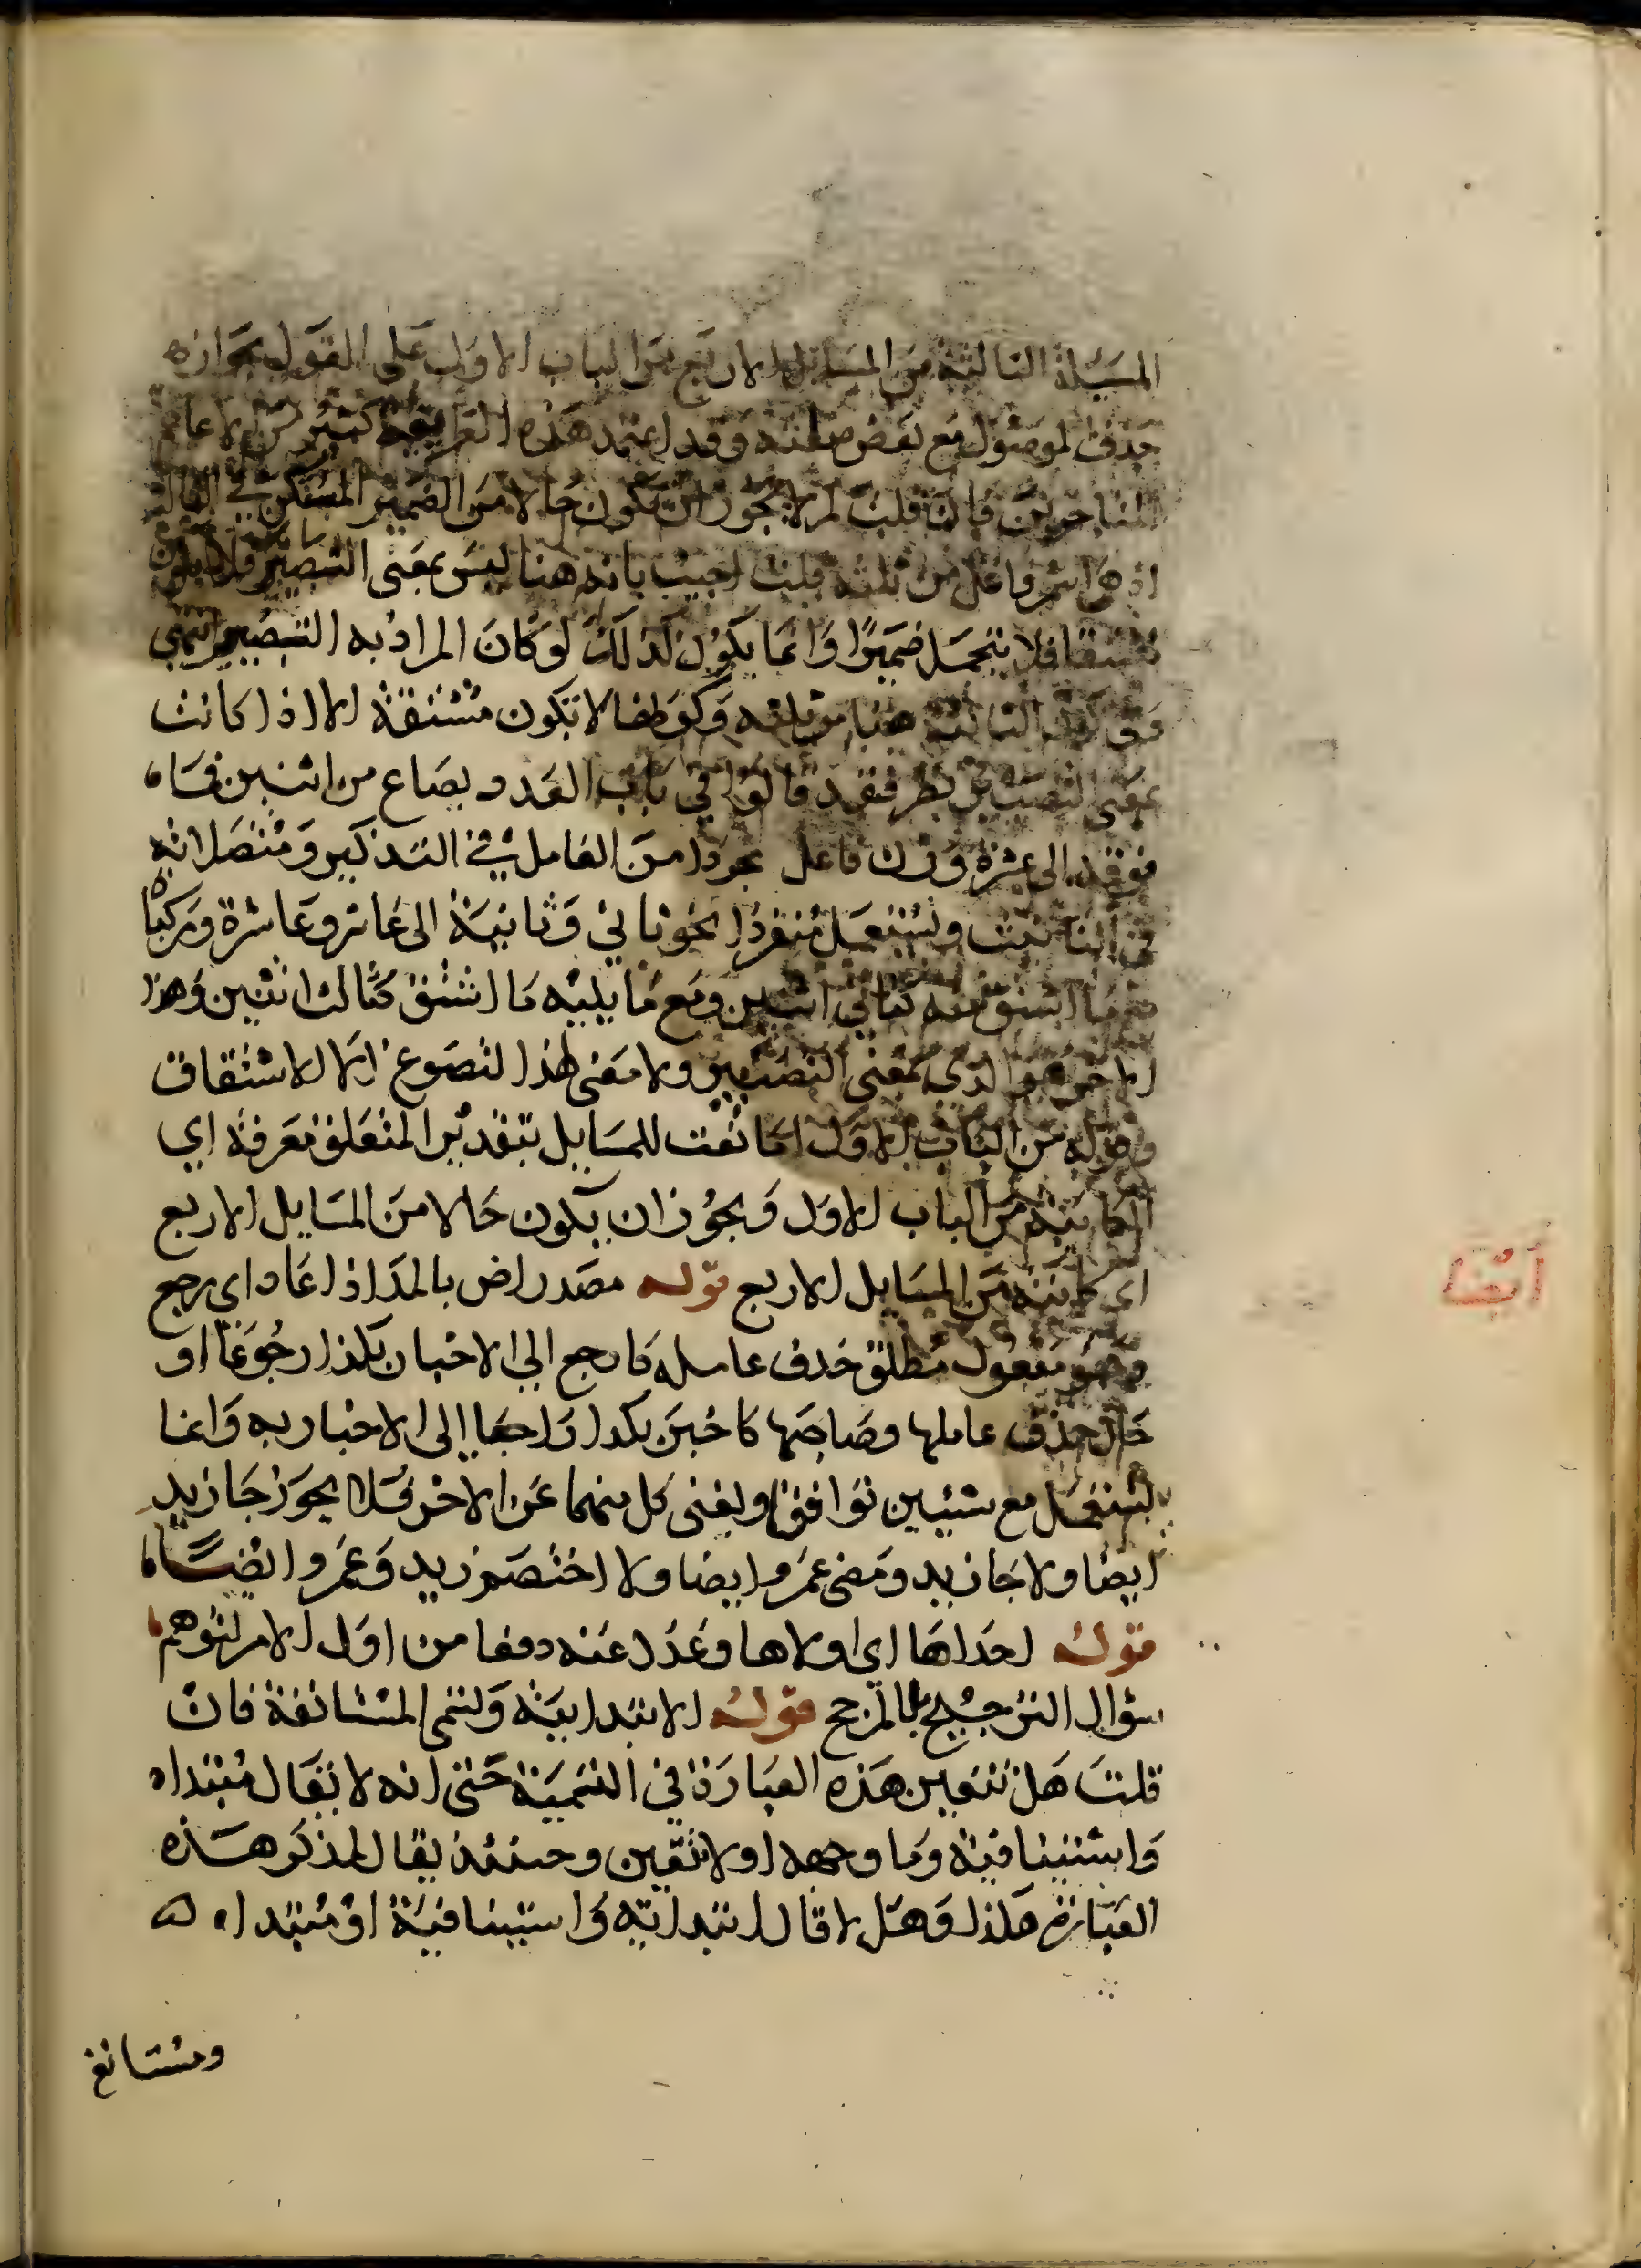 المسيلة الثالثة من المسايل الاربع من الباب الاول على القول بجوازه
حذف الموصول مع بعض صلته وقد اعتمد هذه الطريقة كثير من الاعاجم
المتاخرين فان قلت لم لا يجوز ان تكون حالا من الضمير المستكن في الثالثة
اذ هي اسم فاعل من ثلثه قلت اجيب بانه هنا ليس بمعنى التصيير فلا يكون
مشتقا فلا يتحمل ضميرا وانما يكون كذلك لو كان المراد به التصيير انتهى
وفي كون الثالثة هنا من ثلثه وكونها لا تكون مشتقة الا اذا كانت
بمعنى التصيير نظر فقد قالوا في باب العدد ويصاغ من اثنين فما
فوقه الى عشرة وزن فاعل مجردا من العامل في التذكير ومتصلا به
في التانيث ويستعمل منفردا نحو ثاني وثانية الى عاشر وعاشرة ومركبا
مع ما اشتق منه كثاني اثنين ومع ما يليه ما اشتق كثالث اثنين وهذا
الاخير هو الذي بمعنى التصيير ولا معنى لهذا لتصوغ الا الاشتقاق
وقوله من الباب الاول اما نعت للمسايل بتقدير المتعلق معرفة اي
الكاينة من الباب الاول ويجوز ان يكون حالا من المسايل الاربع
اي كاينة من المسايل الاربع قوله مصدر اض بالمد اذا عاد اي رجع
وهو مفعول مطلق حذف عامله كارجع الى الاخبار بكذا رجوعا او
حال حذف عاملها وصاحبها كاخبر بكذا راجعا الى الاخبار به وانما
يستعمل مع شيئين توافقا ويغنى كل منهما عن الاخر فلا يجوز جا زيد
ايضا ولا جا زيد ومضى عمرو ايضا ولا اختصم زيد وعمرو ايضا
قوله احداها اي اولاها وعدل عنه دفعا من اول الامر لتوهم
سؤال الترجيح بلا مرجح قوله الابتدائية وتسمى المستانفة فان
قلت هل تتعين هذه العبارة في التسمية حتى انه لا يقال مبتداه
واستينافية وما وجهه او لا تتعين وحينئذ يقال لم ذكر هذه
العبارة هكذا وهل لا قال ابتدائية واستينافية او مبتداه
ومستانف
ايضا